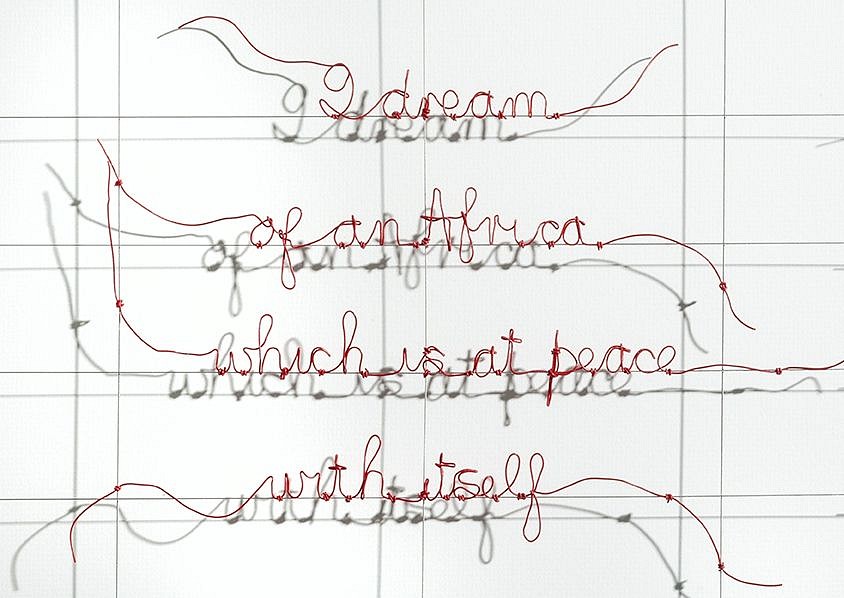 I dream
of an Africa
which is at peace
with itself